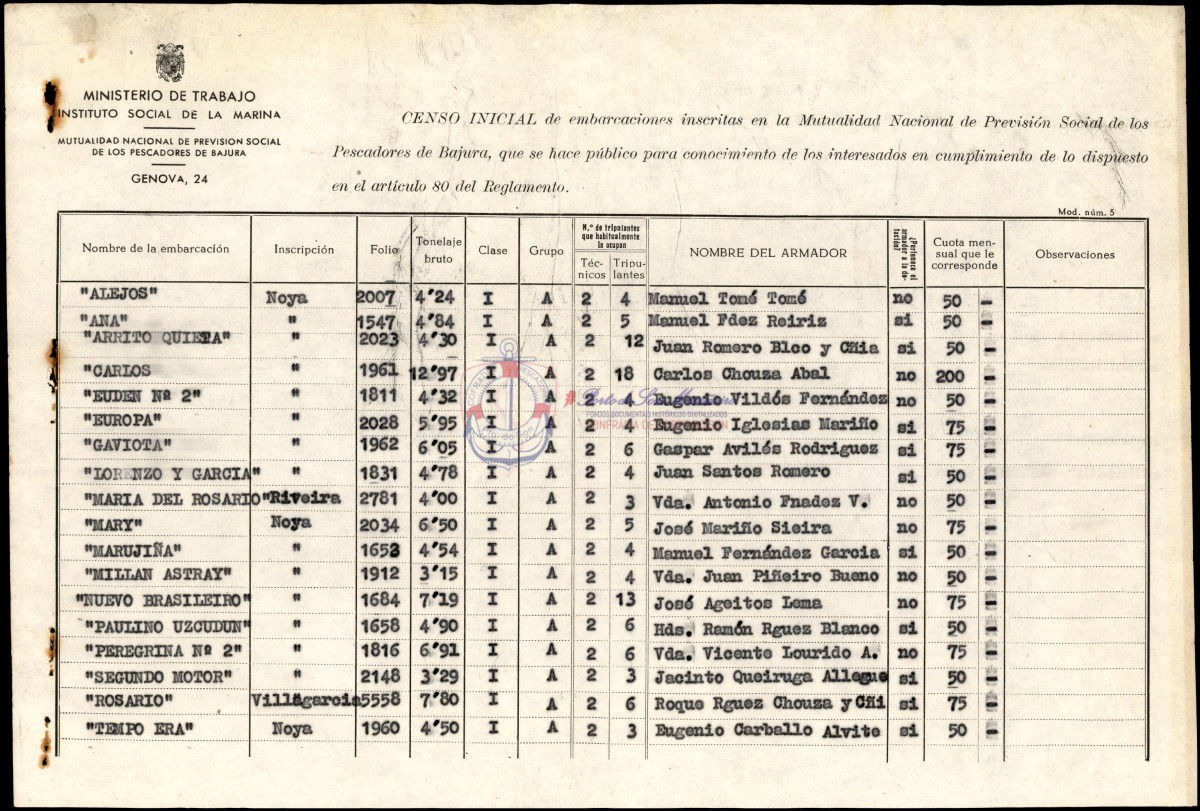 MINISTERIO DE TRABAJO
INSTITUTO SOCIAL DE LA MARINA
MUTUALIDAD NACIONAL DE PREVISION SOCIAL
DE LOS PESCADORES DE BAJURA
GENOVA, 24
CENSO INICIAL de embarcaciones inscritas en la Mutualidad Nacional de Previsión Social de los
Pescadores de Bajura, que se hace público para conocimiento de los interesados en cumplimiento de lo dispuesto
en el artículo 80 del Reglamento.
Mod. núm. 5
Nombre de la embarcación Inscripción Folio Tonelaje bruto Clase Grupo N.º de tripulantes que habitualmente la ocupan Téc-nicos Tripu-lantes NOMBRE DEL ARMADOR ¿Pertenece el armador a la do-tación? Cuota men-sual que le corresponde Observaciones
"ALEJOS" Noya 2007 4'24 I A 2 4 Manuel Tomé Tomé no 50 -
"ANA" " 1547 4'84 I A 2 5 Manuel Fdez Reiriz si 50 -
"ARRITO QUIETA" " 2023 4'30 I A 2 12 Juan Romero Blco y Cñia si 50 -
"CARLOS " 1961 12'97 I A 2 18 Carlos Chouza Abal no 200 -
"EUDEN Nº 2" " 1811 4'32 I A 2 4 Eugenio Vildós Fernández no 50 -
"EUROPA" " 2028 5'95 I A 2 4 Eugenio Iglesias Mariño si 75 -
"GAVIOTA" " 1962 6'05 I A 2 6 Gaspar Avilés Rodriguez si 75 -
"LORENZO Y GARCIA" " 1831 4'78 I A 2 4 Juan Santos Romero si 50 -
"MARIA DEL ROSARIO" Riveira 2781 4'00 I A 2 3 Vda. Antonio Fnadez V. no 50 -
"MARY" Noya 2034 6'50 I A 2 5 José Mariño Sieira no 75 -
"MARUJIÑA" " 1653 4'54 I A 2 4 Manuel Fernández Garcia si 50 -
"MILLAN ASTRAY" " 1912 3'15 I A 2 4 Vda. Juan Piñeiro Bueno no 50 -
"NUEVO BRASILEIRO" " 1684 7'19 I A 2 13 José Ageitos Lema no 75 -
"PAULINO UZCUDUN" " 1658 4'90 I A 2 6 Hds. Ramón Rguez Blanco si 50 -
"PEREGRINA Nº 2" " 1816 6'91 I A 2 6 Vda. Vicente Lourido A. no 75 -
"SEGUNDO MOTOR" " 2148 3'29 I A 2 3 Jacinto Queiruga Allegue si 50 -
"ROSARIO" Villagarcia 5558 7'80 I A 2 6 Roque Rguez Chouza y Cñi si 75 -
"TEMPO ERA" Noya 1960 4'50 I A 2 3 Eugenio Carballo Alvite si 50 -